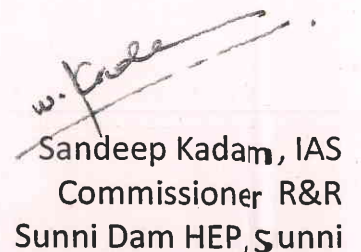 Sandeep Kadam, IAS
Commissioner R&R
Sunni Dam HEP, Sunni